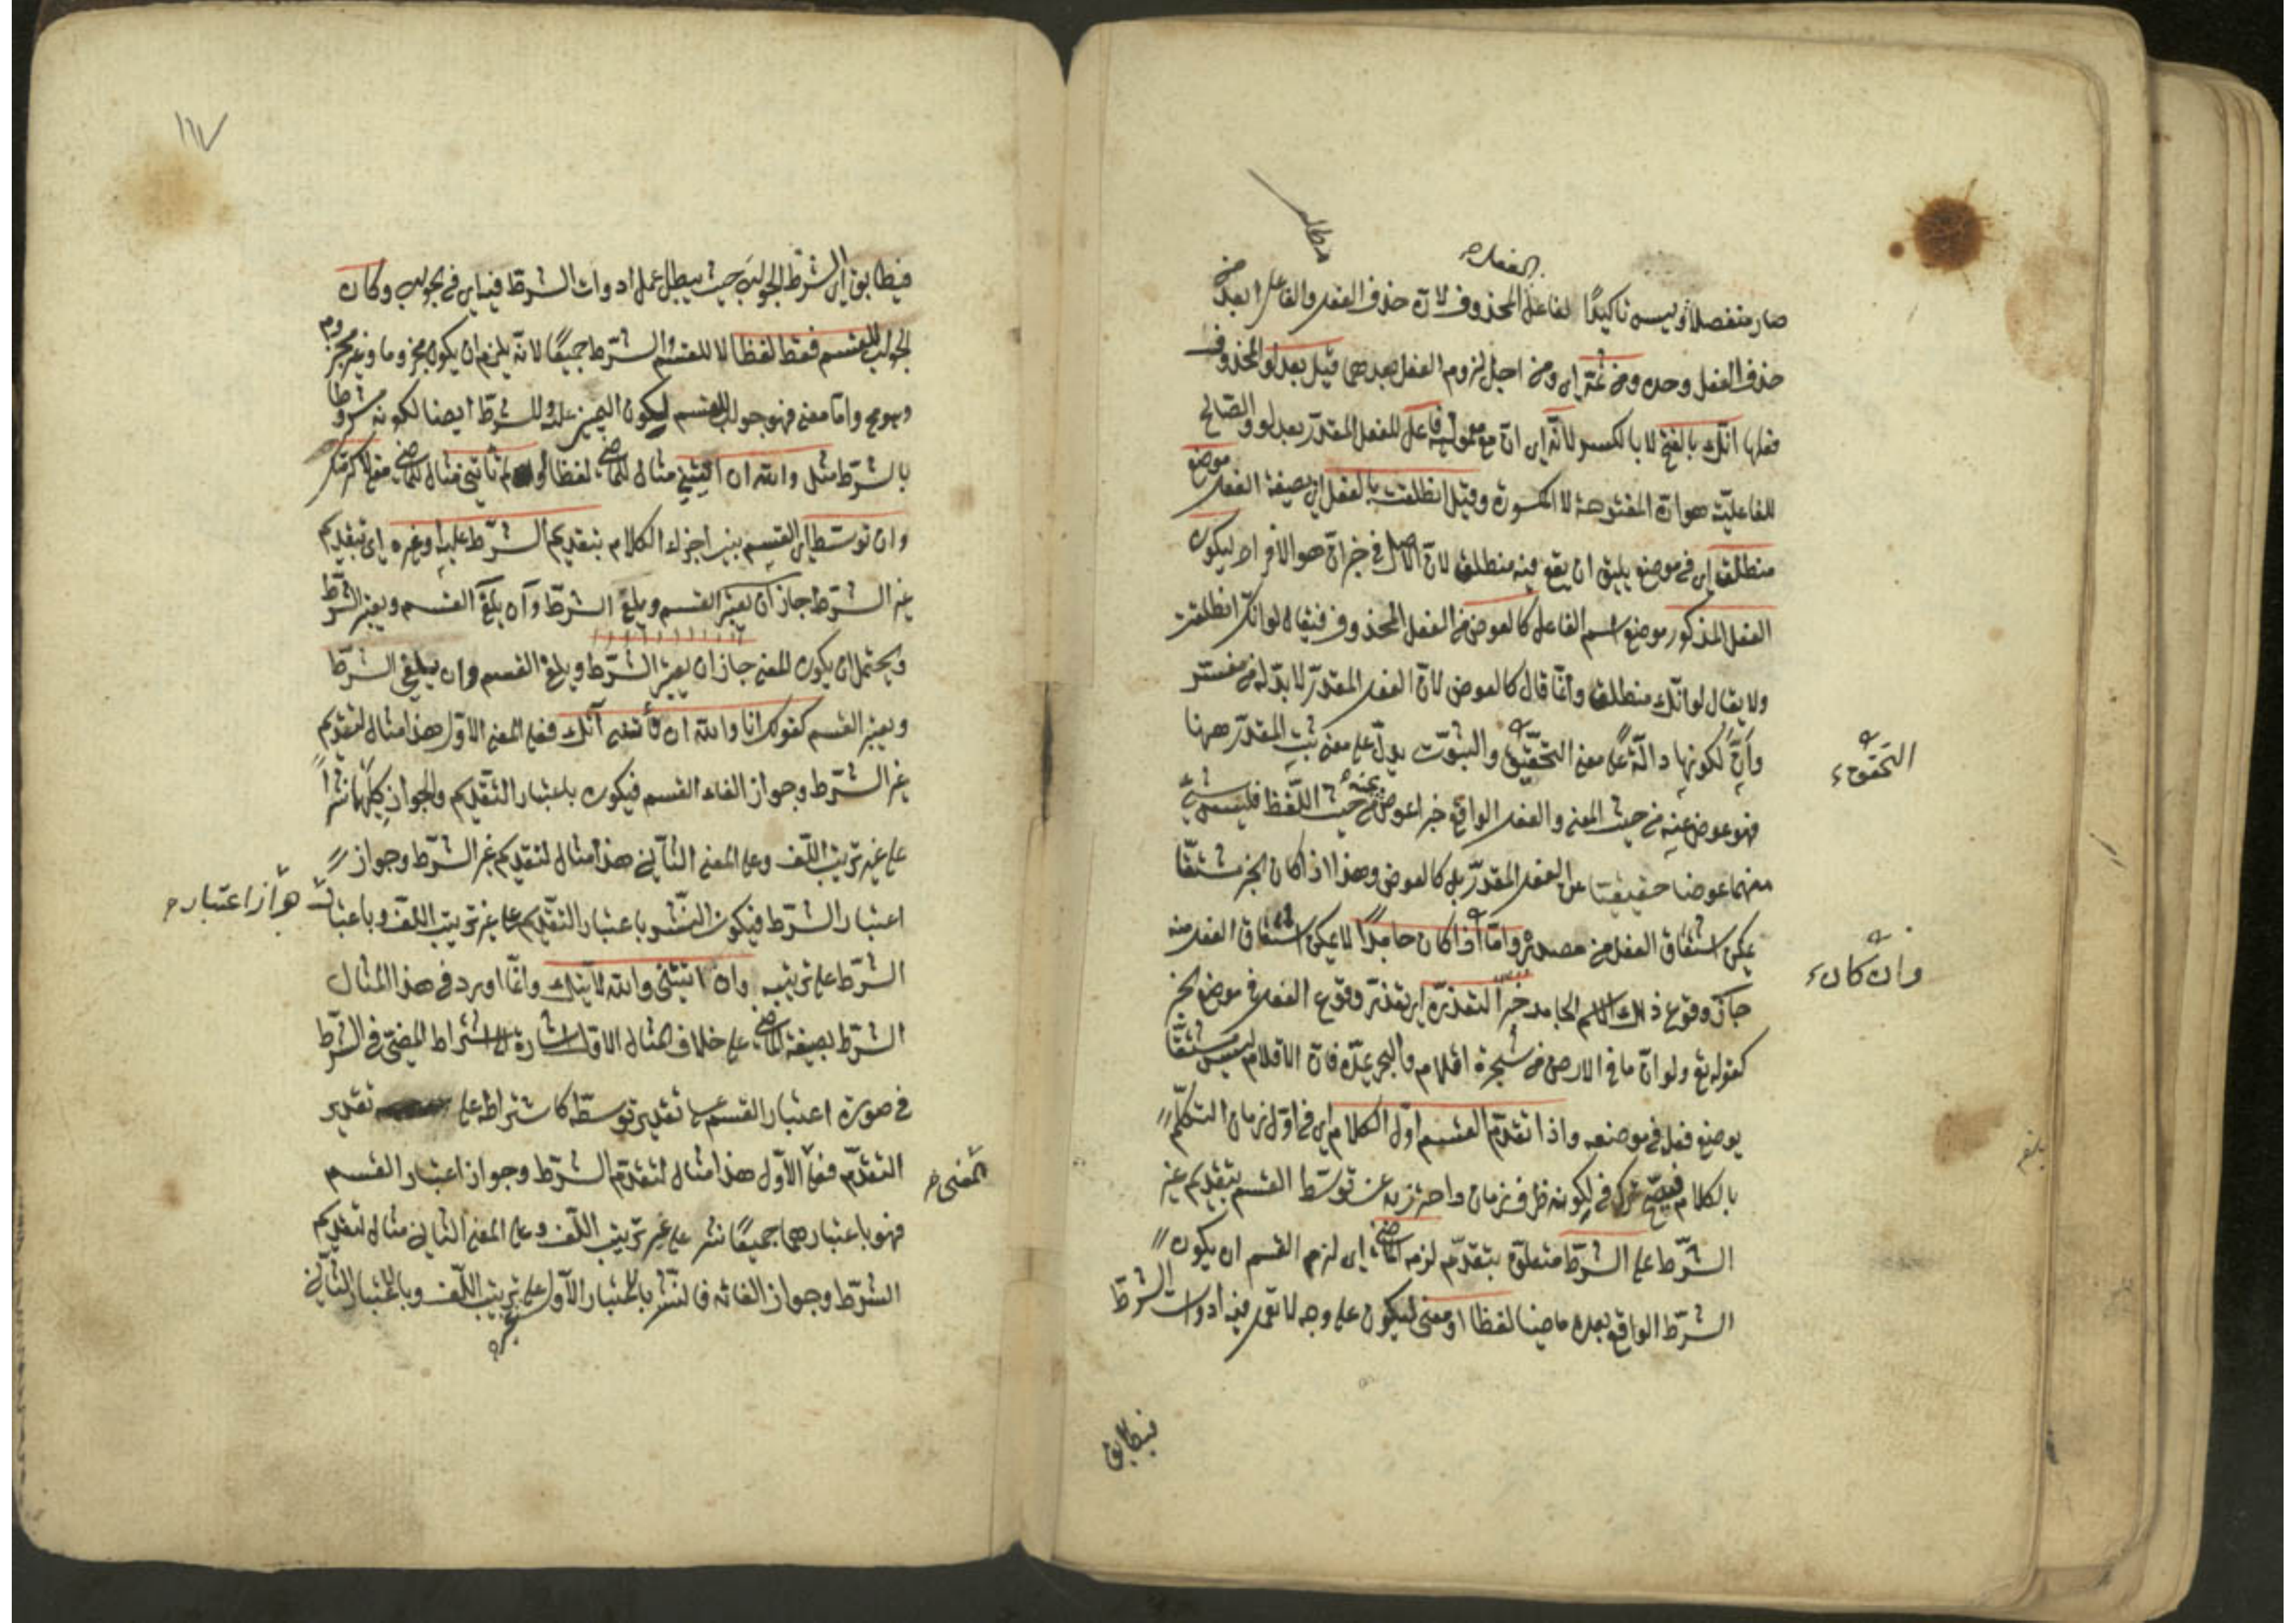 الفعل
صار منفصلا وليس تاكيدًا لفاعل المحذوف لان حذف الفعل والفاعل ابعد من
حذف الفعل وحده ومن ثمّ اى ومن اجل لزوم الفعل بعدهما قيل بعد لو المحذوف
فعلها انّك بالفتح لا بالكسر لانّه اى انّ مع معموليه فاعل للفعل المقدّر بعد لو والصالح
للفاعليّة هو انّ المفتوحة لا المكسورة وقيل انطلقت بالفعل اى بصيغة الفعل موضع
منطلق اى في موضع يليق ان يقع فيه منطلق لانّ الاصل في خبر انّ هو الافراد ليكون
الفعل المذكور موضع اسم الفاعل كالعوض من الفعل المحذوف فيقال لو انّك انطلقت
ولا يقال لو انّك منطلق وانّما قال كالعوض لانّ الفعل المقدّر لا بدّ له من مفسّر
وأنّ لكونها دالّة على معنى التحقّق والثبوت يدلّ على معنى ثبت المقدّر ههنا
فهو عوض عنه من حيث المعنى والفعل الواقع خبرا عوض عنه من حيث اللّفظ فليس شئ
منهما عوضا حقيقيّا عن الفعل المقدّر بل كالعوض وهذا اذا كان الخبر مشتقّا
يمكن اشتقاق الفعل من مصدره وامّا اذا كان جامدًا لا يمكن اشتقاق الفعل منه
جاز وقوع ذلك الاسم الجامد خبرًا لتعذّره اى تعذّر وقوع الفعل في موضع الخبر
كقوله تع ولو انّ ما في الارض من شجرة اقلام والبحر يمدّه فانّ الاقلام ليس مشتقّا
يوضع فعل في موضعه واذا تقدّم القسم اوّل الكلام اى في اوّل زمان التكلّم
بالكلام فيصحّ ترك في لكونه ظرف زمان واحترز به عن توسّط القسم بتقديم غير
الشّرط على الشّرط متعلّق بتقدّم لزمه الماضى اى لزم القسم ان يكون
الشّرط الواقع بعده ماضيا لفظا او معنى ليكون على وجه لا تعمل فيه ادوات الشّرط
فيطابق
التحقّق
وان كان
١١٧
فيطابق اى الشّرط الجواب حيث يبطل عمل ادوات الشرط فيه اى في الجواب وكان
الجواب للقسم فقط لفظا لا للقسم والشّرط جميعًا لانّه يلزم ان يكون مجزوما وغير مجزوم
وهو مح وامّا معنى فهو جواب للقسم لكون اليمين عليه وللشرط ايضا لكونه مشروطا
بالشّرط مثل والله ان اتيتنى مثال للماضى لفظا او لم تأتنى مثال للماضى معنى لاكرمتك
وان توسّط اى القسم بين اجزاء الكلام بتقديم الشّرط عليه او غيره اى تقديم
غير الشّرط جاز ان يعتبر القسم ويلغى الشرط وان يلغى القسم ويعتبر الشّرط
ويحتمل ان يكون المعنى جاز ان يعتبر الشّرط ويلغى القسم وان يلغى الشّرط
ويعتبر القسم كقولك انا والله ان تأتنى آتك فعلى المعنى الاوّل هذا مثال لتقديم
غير الشّرط وجواز الغاء القسم فيكون باعتبار التّقديم والجواز كليهما نشرا
على غير ترتيب اللّف وعلى المعنى الثّانى هذا مثال لتقديم غير الشّرط وجواز
اعتبار الشّرط فيكون النّشر باعتبار التقديم على غير ترتيب اللّف وباعتبار
الشّرط على ترتيبه وان اتيتنى والله لآتينّك وانّما اورد في هذا المثال
الشّرط بصيغة الماضى على خلاف المثال الاوّل اشارة الى اشتراط المضىّ في الشّرط
في صورة اعتبار القسم على تقدير توسّطه كاشتراطه على تقدير
التقدّم فعلى الاوّل هذا مثال لتقدّم الشّرط وجواز اعتبار القسم
فهو باعتبارهما جميعًا نشر على غير ترتيب اللّف وعلى المعنى الثّانى مثال لتقديم
الشّرط وجواز الغائه فالنّشر باعتبار الاوّل على ترتيب اللّف وباعتبار الثّانى
جواز اعتبار
المعنى